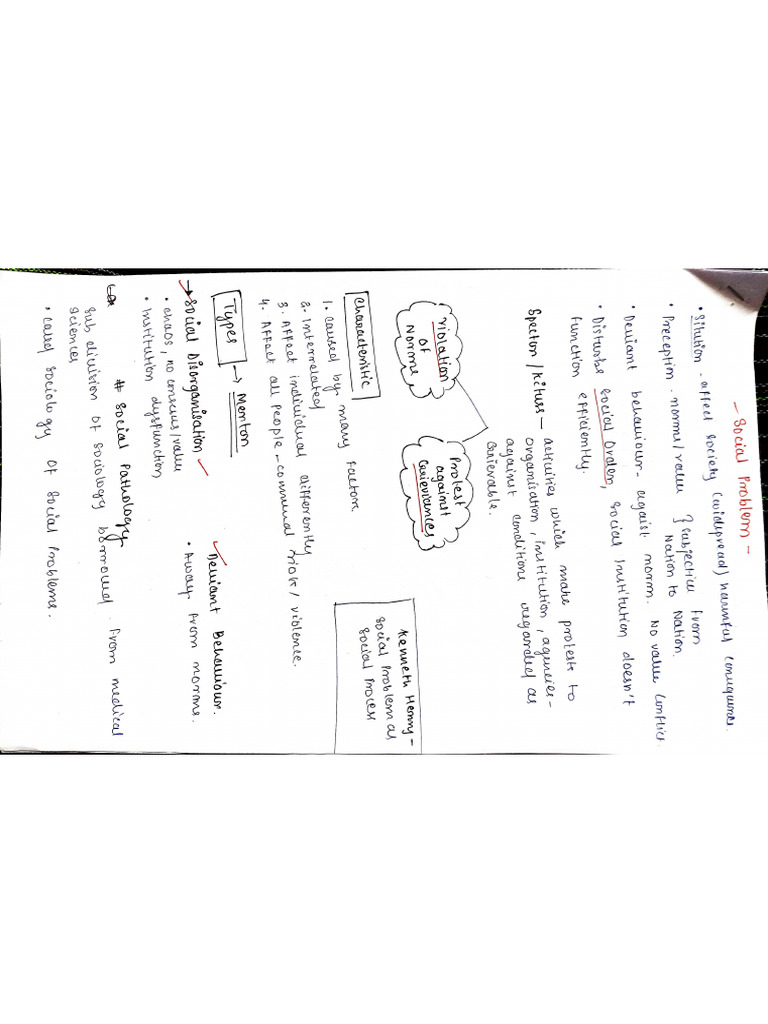 - Social Problem -
• Sitution - affect society (widespread) harmful consequences.
• Preception - norms/value } subjective from
Nation to Nation.
• Deviant behaviour - agaist norm. No value conflict
• Disturbs Social Order, social institution doesn't
function efficiently.
Spector/Kituss - activities which make protests to
organisation, institution, agencies -
against conditions regarded as
Grievable.
Violation
of
Norms
Protest
against
Grieviances
Kenneth Henry -
Social Problem as
Social Process
Characteristic
1. Caused by many factors.
2. Interrelated
3. Affect individual differently
4. Affect all people - communal riots/violence.
Types → Merton
→ Social Disorganisation
• chaos, no consensus/value
• Institution dysfunction
Deviant Behaviour.
• Away from norms.
# Social Pathology
Sub division of sociology borrowed from medical
sciences
• called sociology of social Problems.